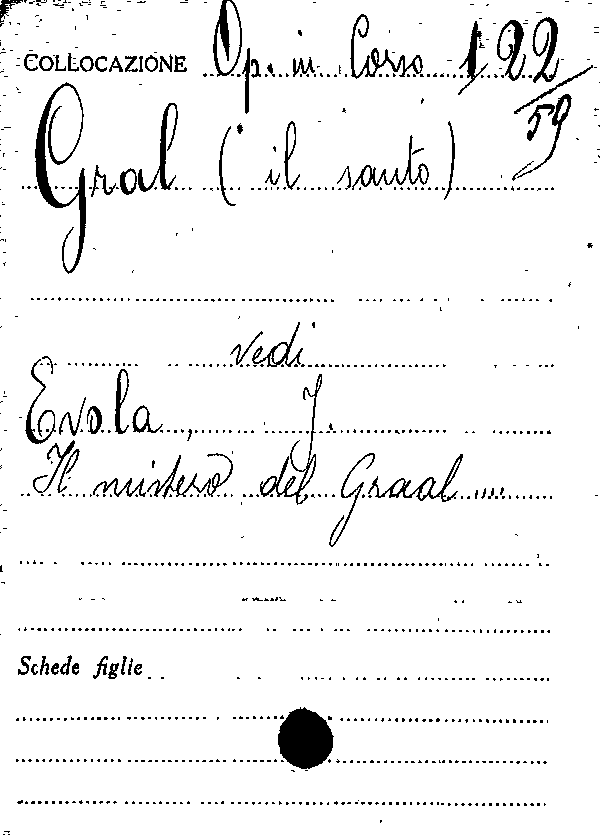 COLLOCAZIONE Op. in Corso 122/59
Gral (il santo)
vedi
Evola, J.
Il mistero del Graal ....
Schede figlie